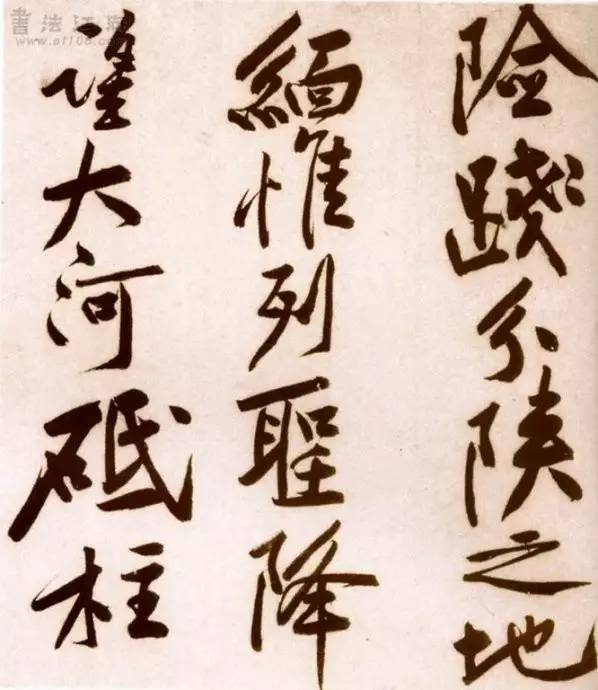 險踐分陝之地
緬惟列聖降
望大河砥柱
書法江湖
www.sf108.com